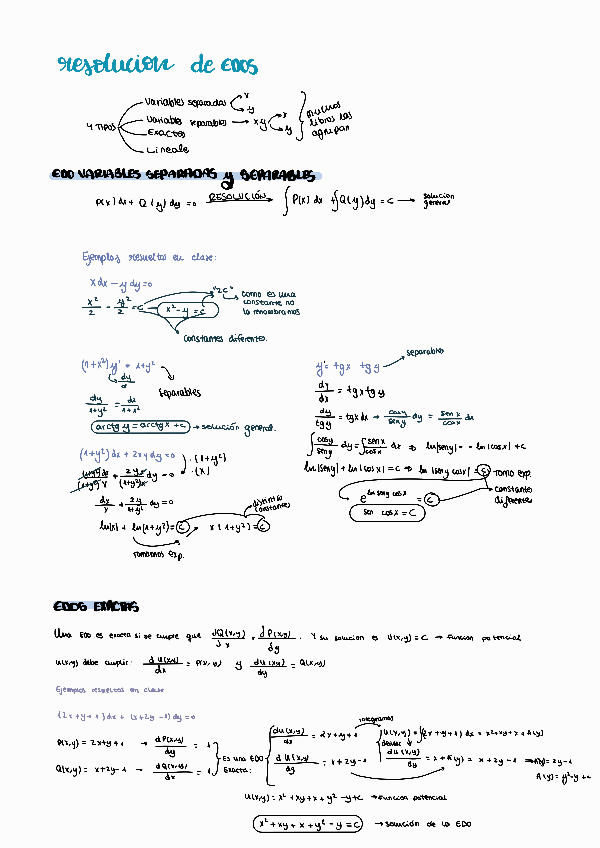 resolucion de EDOS
4 TIPOS
Variables separadas x y
Variables separables → x,y x y
Exactas
Lineale
muchos libros las agrupan
EDO VARIABLES SEPARADAS y SEPARABLES
P(x) dx + Q(y) dy = 0 RESOLUCIÓN ∫P(x) dx + ∫Q(y) dy = C → solucion general
Ejemplos resueltos en clase:
x dx - y dy = 0
x²/2 - y²/2 = C x² - y = C "2C" como es una constante no la renombramos
constantes diferentes.
(1+x²)y' = 1+y²
dy/d
Separables
dy/1+y² = dx/1+x²
arctg y = arctg x + c → solución general.
(1+y²) dx + 2xy dy = 0 · (1+y²) · (x)
(1+y²)dx/(1+y²)x + 2xy/(1+y²)x dy = 0
dx/x + 2y/1+y² dy = 0
ln|x| + ln(1+y²) = C x(1+y²) = C distintas constantes
tomamos exp.
y' = tg x tg y → separables
dy/dx = tg x tg y
dy/tg y = tg x dx → cos y/sen y dy = sen x/cos x dx
∫ cos y/sen y dy = ∫ sen x/cos x dx ⇒ ln|sen y| = - ln|cos x| + C
ln|sen y| + ln|cos x| = C ⇒ ln|sen y cos x| = C → tomo exp.
e^ln sen y cos x = C → constante diferentes
sen cos x = C
EDOS EXACTAS
Una EDO es exacta si se cumple que dQ(x,y)/dx = dP(x,y)/dy . Y su solucion es U(x,y) = C → funcion potencial
U(x,y) debe cumplir: dU(x,y)/dx = P(x,y) y dU(x,y)/dy = Q(x,y)
Ejemplos resueltos en clase
(2x+y+1) dx + (x+2y-1) dy = 0
P(x,y) = 2x+y+1 → dP(x,y)/dy = 1
Q(x,y) = x+2y-1 → dQ(x,y)/dx = 1
Es una EDO Exacta:
du(x,y)/dx = 2x+y+1 integramos U(x,y) = ∫(2x+y+1) dx = x²+xy+x+A(y)
dU(x,y)/dy = x+2y-1 derivar dU(x,y)/dy = x + A'(y) = x+2y-1 → A'(y) = 2y-1
A(y) = y²-y+c
U(x,y) = x² + xy + x + y² - y + C → funcion potencial
x² + xy + x + y² - y = C → solución de la EDO